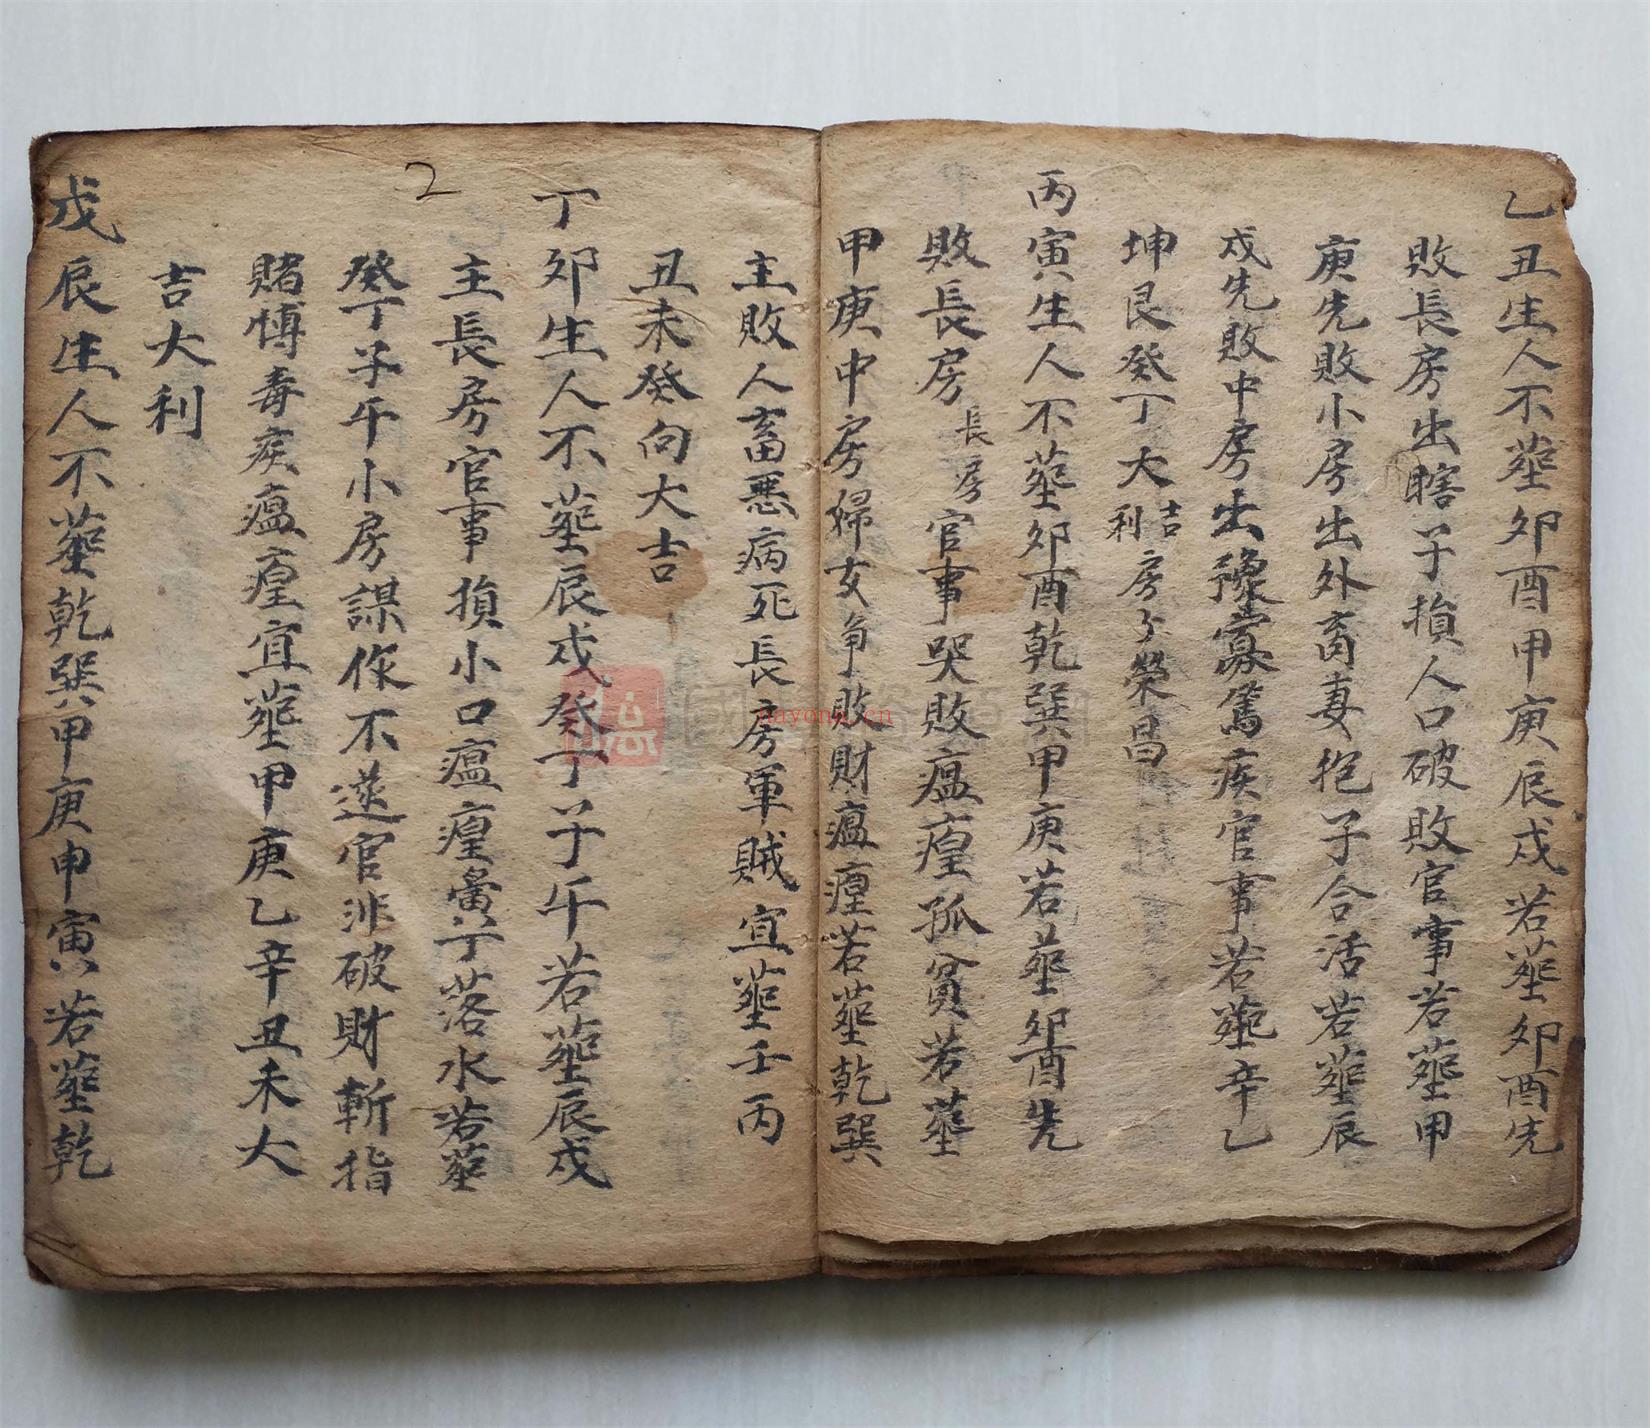 乙丑生人不葬卯酉甲庚辰戌若葬卯酉先
敗長房出瞎子損人口破敗官事若葬甲
庚先敗小房出外畜妻抱子合活若葬辰
戌先敗中房出殘寡篤疾官事若葬辛乙
坤艮癸丁大吉利房々榮昌
丙寅生人不葬卯酉乾巽甲庚若葬卯酉先
敗長房長房官事哭敗瘟瘟孤貧若葬
甲庚中房婦女争敗財瘟瘟若葬乾巽
主敗人畜惡病死長房軍賊宜葬壬丙
丑未癸向大吉
丁卯生人不葬辰戌癸丁子午若葬辰戌
主長房官事損小口瘟瘟落水若葬
癸丁子午小房謀作不遂官非破財斬指
賭博毒疾瘟瘟宜葬甲庚乙辛丑未大
吉大利
戊辰生人不葬乾巽甲庚申寅若葬乾
2
nayona.cn